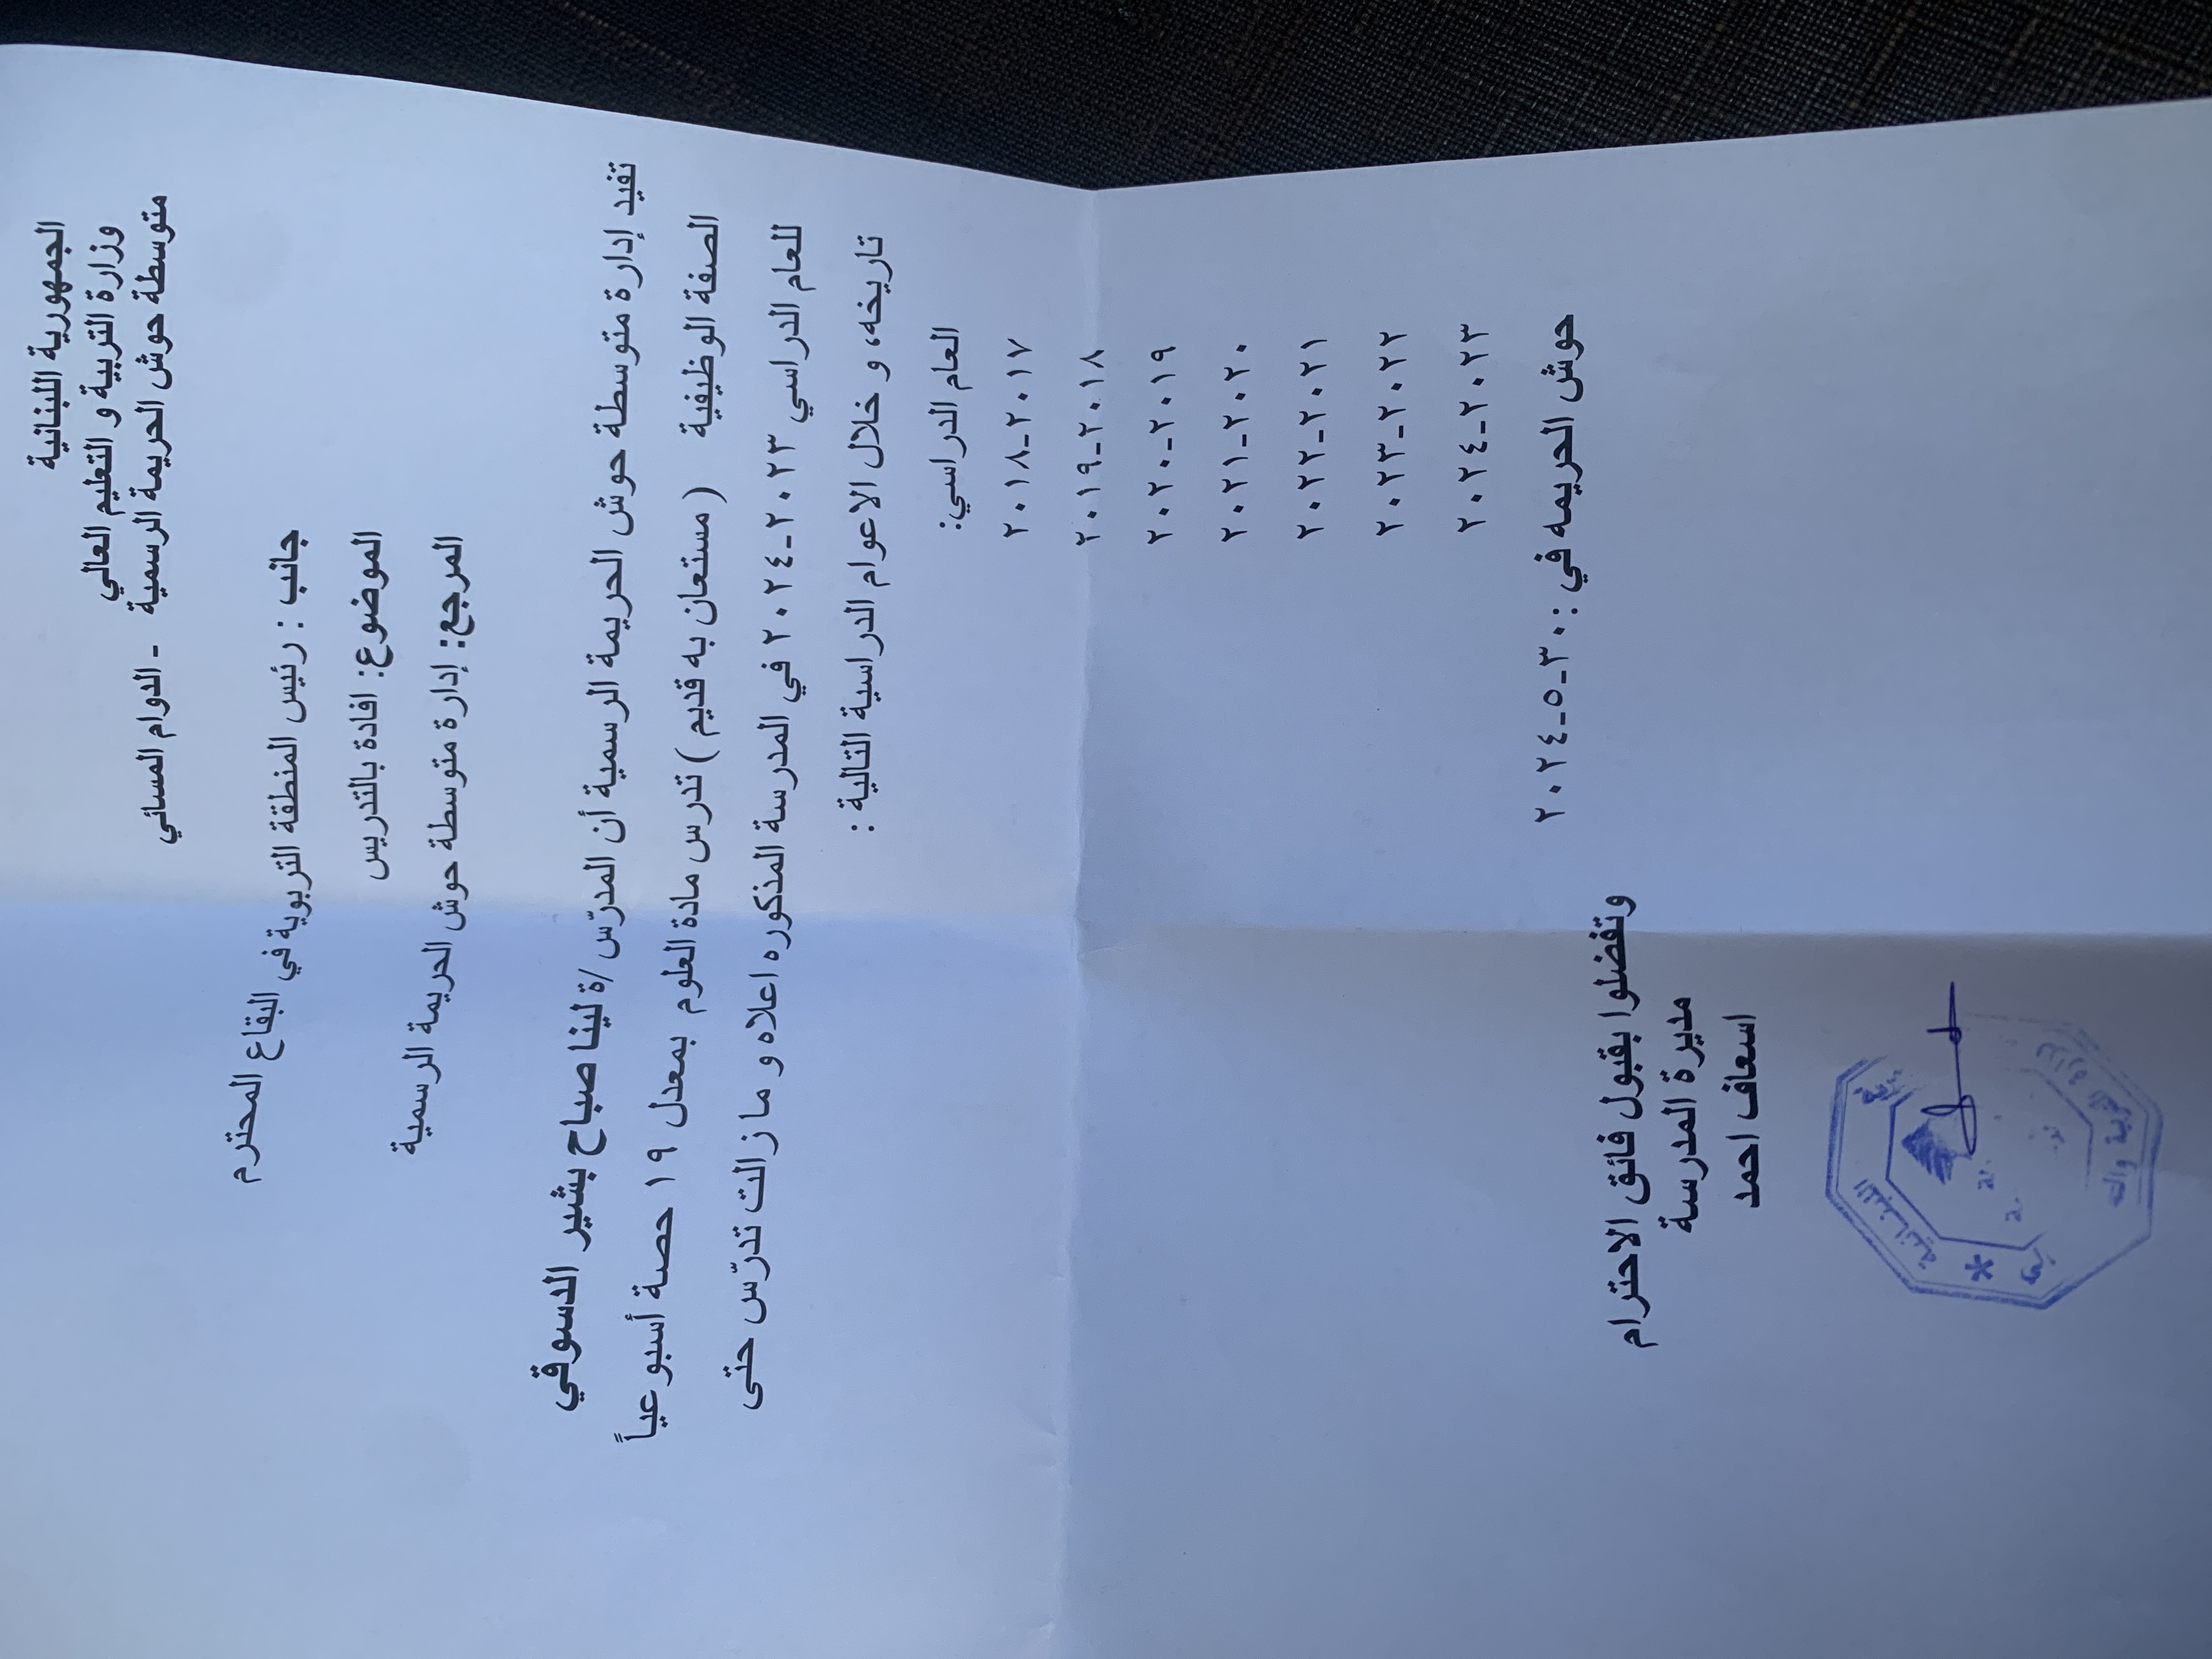 الجمهورية اللبنانية
وزارة التربية و التعليم العالي
متوسطة حوش الحريمة الرسمية - الدوام المسائي
جانب : رئيس المنطقة التربوية في البقاع المحترم
الموضوع: افادة بالتدريس
المرجع: إدارة متوسطة حوش الحريمة الرسمية
تفيد إدارة متوسطة حوش الحريمة الرسمية أن المدرّس /ة لينا صباح بشير الدسوقي
الصفة الوظيفية ( مستعان به قديم ) تدرس مادة العلوم بمعدل ١٩ حصة أسبوعياً
للعام الدراسي ٢٠٢٣-٢٠٢٤ في المدرسة المذكوره اعلاه و ما زالت تدرّس حتى
تاريخه، و خلال الاعوام الدراسية التالية :
العام الدراسي:
٢٠١٧-٢٠١٨
٢٠١٨-٢٠١٩
٢٠١٩-٢٠٢٠
٢٠٢٠-٢٠٢١
٢٠٢١-٢٠٢٢
٢٠٢٢-٢٠٢٣
٢٠٢٣-٢٠٢٤
حوش الحريمه في : ٣٠-٥-٢٠٢٤
وتفضلوا بقبول فائق الاحترام
مديرة المدرسة
اسعاف احمد
اللبنانية